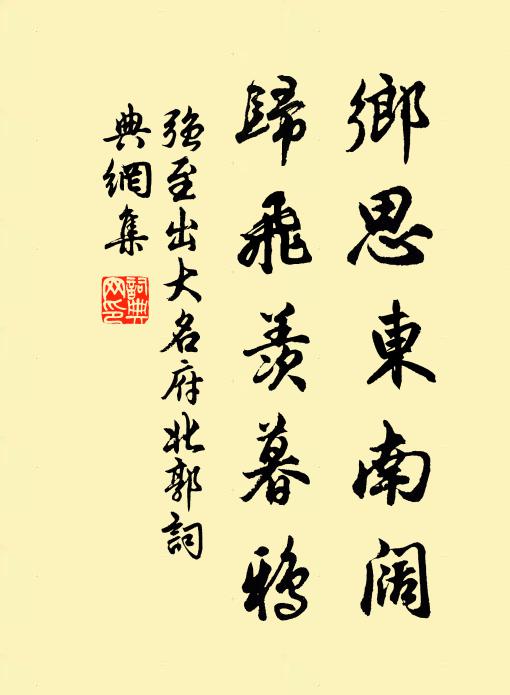 鄉思東南闊
歸飛羨暮鴉
強至出大名府北郭詞
典網集
詞典
网印